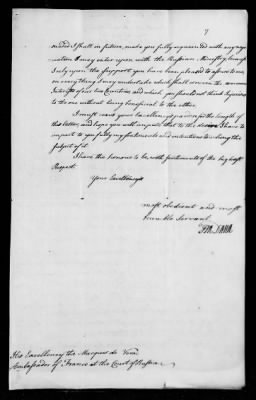 7
needed I shall in future, make you fully acquainted with any nego
ciation I may enter upon with the Russian Ministry, because
I rely upon the support you have been pleased to assure to me,
on every thing I may undertake which shall concern the common
Interests of our two Countries and which you should not think Injurious
to the one without being beneficial to the other.
I must crave your Excellency's pardon for the length of
this letter, and hope you will impute it to the desire I have to
impart to you fully my sentiments and intentions touching the
subject of it.
I have the honour to be with sentiments of the highest
Respect
Your Excellency's
most obedient and most
humble Servant
FRA. DANA
His Excellency the Marquis de Verac
Ambassador of France at the Court of Russia